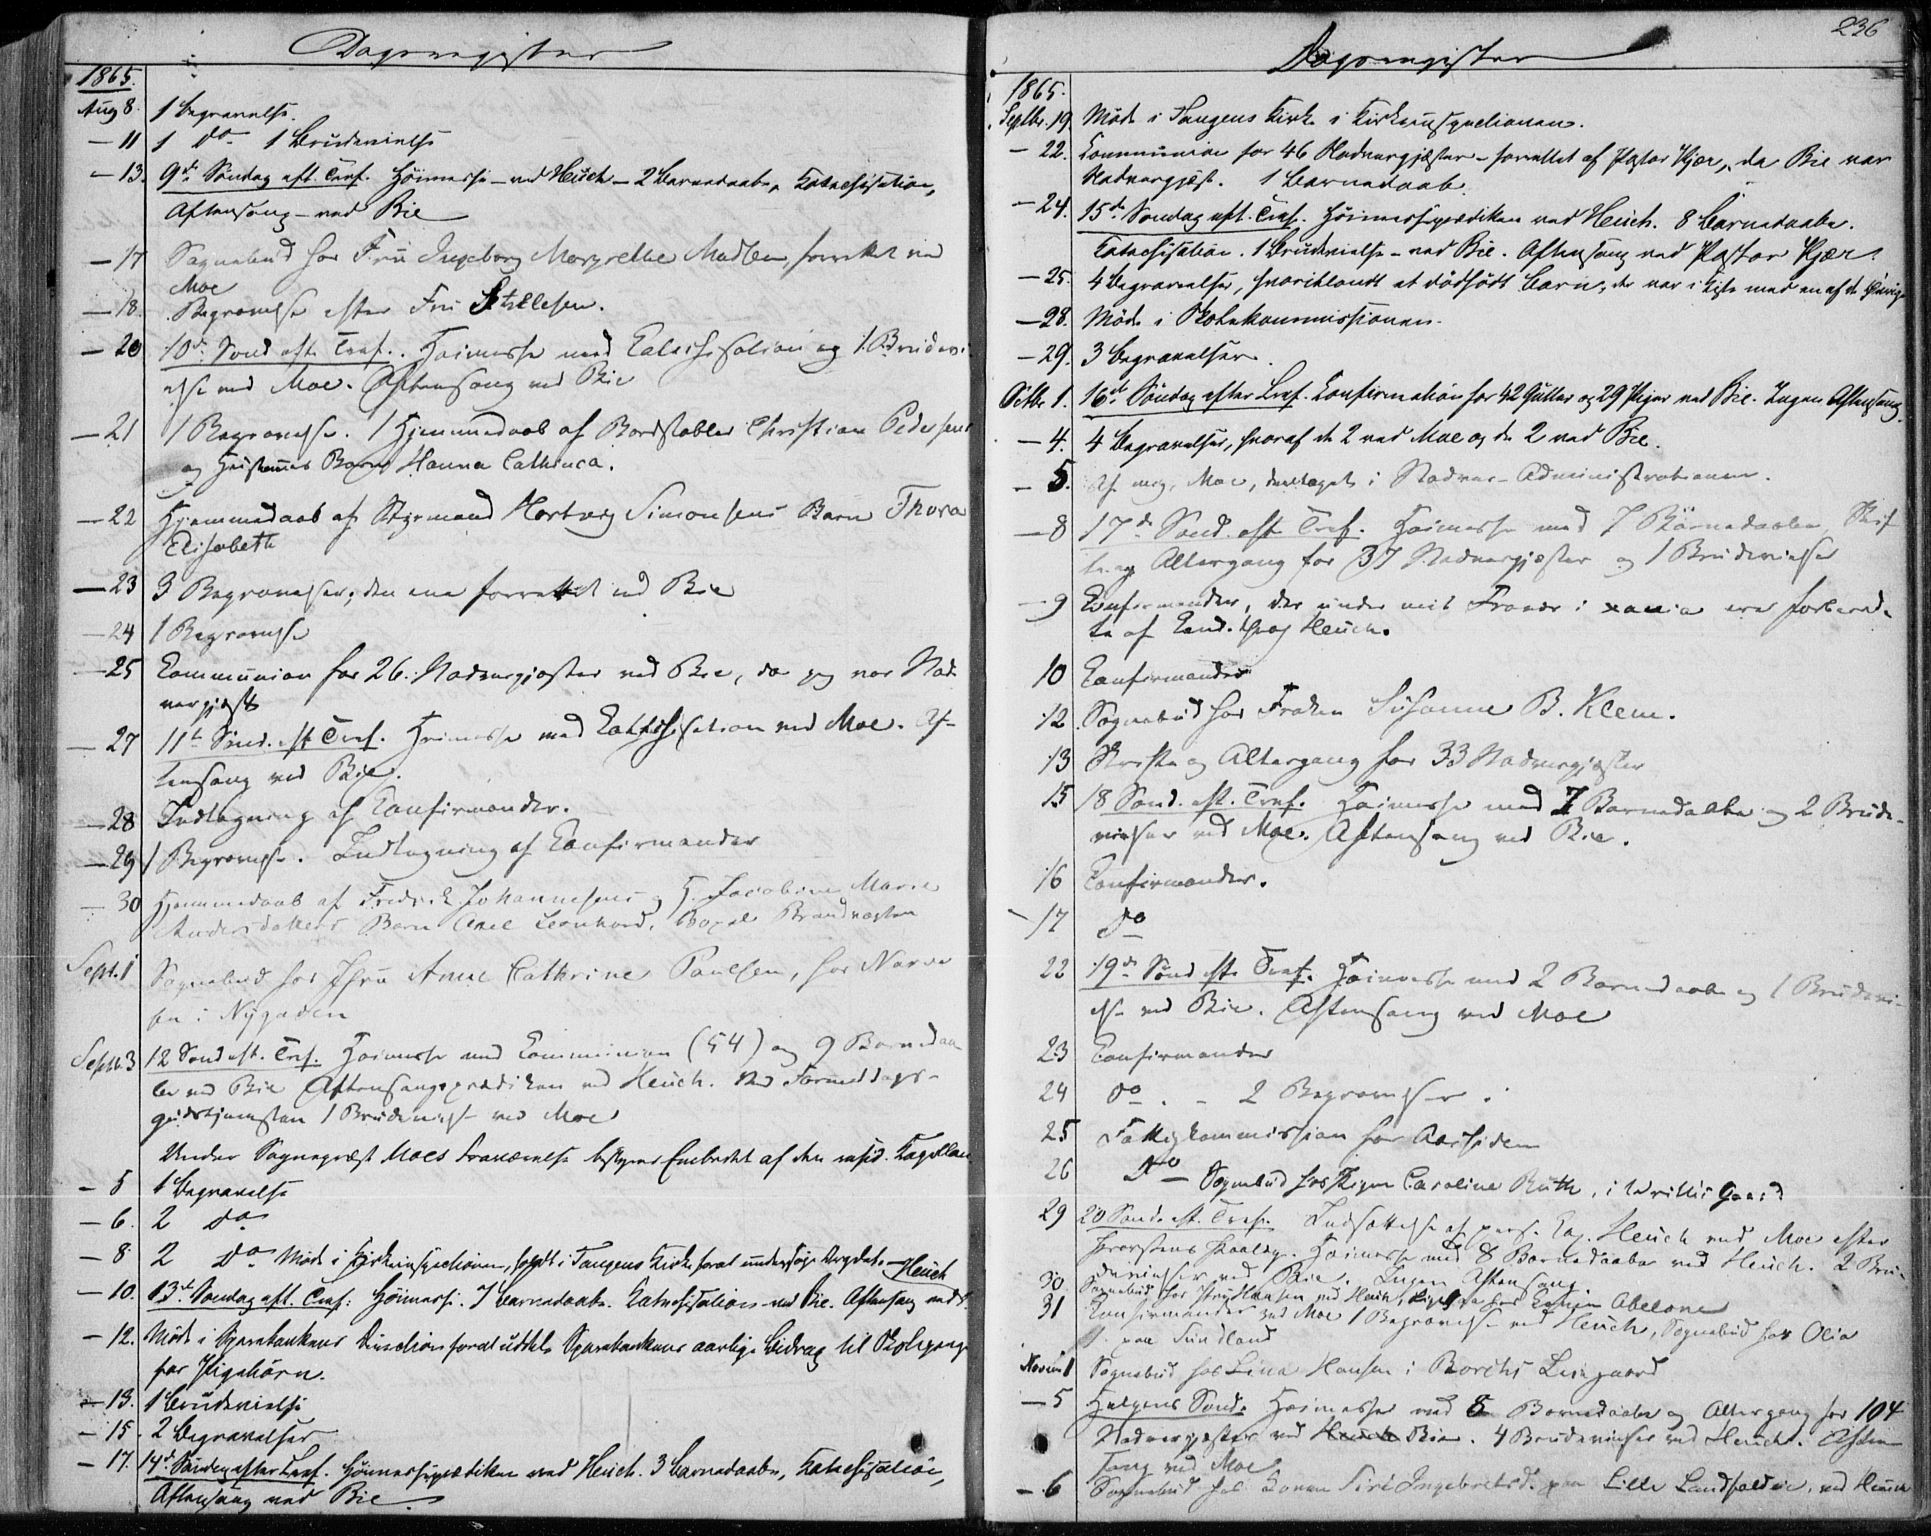 Dagsregister
1865.
Aug 8. 1 Begravelse.
— 11 1 do 1 Brudevielse
— 13. 9de Søndag eft. Tref. Høimesse – ved Heuch – 2 Barnedaabe, Katechisation,
Aftensang – ved Bie
— 17 Sognebud hos Fru Ingeborg Margrethe Madsen, forrettet ved
Moe
— 18. Begravelse efter Fru
— 20 10de Sønd. eft. Tref. Høimesse med Catechisation og 1 Brudevi-
else ved Moe. Aftensang ved Bie
— 21 1 Begravelse. 1 Hjemmedaab af Bordstabler Christian Pedersens
og Hustrues Barn Hanna Cathinca.
— 22 Hjemmedaab af Styrmand Hartvig Simonsens Barn Thora
Elisabeth
— 23 3 Begravelser; den ene forrettet ved Bie
— 24 1 Begravelse
— 25 Communion for 26 Nadvergjæster ved Bie, da jeg var Nad-
vergjæst
— 27 11te Sønd. eft Tref. Høimesse med Catechisation ved Moe. Af-
tensang ved Bie.
— 28 Indtegning af Confirmander.
— 29 1 Begravelse. Indtegning af Confirmander
— 30 Hjemmedaab af Fredrik Johannesens og H. Jacobine Marie
Andersdatters Barn Axel Leonhard.
Sept. 1 Sognebud hos Fru Anne Cathrine Paulsen, hos
i Nygaden
Septb. 3 12 Sønd eft. Tref. Høimesse med Communion (54) og 9 Barnedaa-
be ved Bie Aftensangsprædiken ved Heuch. Ved Formiddags-
gudstjenesten 1 Brudevielse ved Moe
Under Sognepræst Moes Fraværelse bestyres Embedet af den resid. Kapellan
— 5 1 Begravelse
— 6. 2 do
— 8 2 do Møde i Kirkeinspectionen, holdt i Tangens Kirke forat undersøge Orgelet. – Heuch
— 10. 13de Søndag eft. Tref: Høimesse. 7 Barnedaabe. Katechisation ved Bie. Aftensang ved
— 12. Møde i Sparebankens Direction forat uddele Sparebankens aarlige Bidrag til Skolegang
for Pigebørn.
— 13. 1 Brudevielse
— 15. 2 Begravelser
— 17. 14de Søndag efter Tref. Høimesseprædiken ved Heuch. 3 Barnedaabe, Katechisation,
Aftensang ved Bie.
236
Dagsregister
1865.
Septbr. 19. Møde i Tangens Kirke i Kirkeinspectionen.
— 22. Communion for 46 Nadvergjæster – forrettet af Pastor Kjær, da Bie var
Nadvergjæst. 1 Barnedaab.
— 24. 15de Søndag eft. Tref. Høimesseprædiken ved Heuch. 8 Barnedaabe.
Katechisation. 1 Brudevielse – ved Bie. Aftensang ved Pastor Kjær.
— 25. 4 Begravelser, hvoriblandt et dødfødt Barn, der var i Kiste med en af de øvrige
— 28. Møde i Skolekommissionen.
— 29. 3 Begravelser.
Octbr. 1. 16de Søndag efter Tref. Confirmation for 42 Gutter og 29 Piger ved Bie. Ingen Aftensang.
— 4. 4 Begravelser, hvoraf de 2 ved Moe og de 2 ved Bie.
— 5. Af mig, Moe, deeltaget i Stadens Administrationen.
— 8 17de Sønd. eft Tref. Høimesse med 7 Barnedaabe, Skrif-
te og Altergang for 37 Nadvergjæster og 1 Brudevielse
— 9 Confirmander, der under mit Fravær i Xania ere forbered-
te af Cand. theol Heuch.
10 Confirmander
12 Sognebud hos Frøken Susanne B. Klem.
13 Skrifte og Altergang for 33 Nadvergjæster
15 18 Sønd. eft. Tref. Høimesse med 7 Barnedaabe og 2 Brude-
vielser ved Moe. Aftensang ved Bie.
16 Confirmander.
— 17 do
22 19de Sønd eft. Tref. Høimesse med 2 Barnedaabe og 1 Brudevi-
else ved Bie. Aftensang ved Moe
23 Confirmander
24 do. – 2 Begravelser.
25 Fattigkommission for Aarsiden
26 do Sognebud hos Pigen Caroline Ruth, i gaard
29 20 Sønd. eft. Tref. Indsættelse af pers. Cap. Heuch ved Moe efter
Provstens Paalæg. Høimesse med 8 Barnedaabe ved Heuch. 2 Bru-
devielser ved Bie. Ingen Aftensang
30 Sognebud hos Hansen ved Heuch, ligesaa hos Abelone
31 Confirmander ved Moe 1 Begravelse ved Heuch, Sognebud hos Olia
paa Sundland
Novemb 1 Sognebud hos Lina Hansen i Borchs Leiegaard
— 5 Helgens Sønd. Høimesse med 8 Barnedaabe og Altergang for 104
Nadvergjæster ved Heuch Bie. 4 Brudevielser ved Heuch. Aften-
sang ved Moe
— 6 Sognebud hos Konen Siri Ingebretsd. paa Lille Landfaldøie, ved Heuch